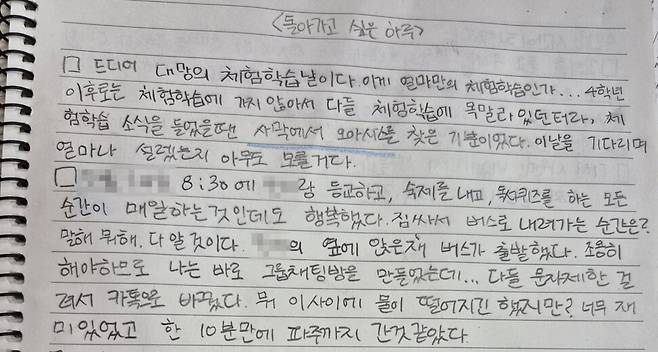 <돌아가고 싶은 하루>
□ 드디어 대망의 체험학습날이다. 이게 얼마만의 체험학습인가... 4학년
이후로는 체험학습에 가지 않아서 다들 체험학습에 목말라 있던터라, 체
험학습 소식을 들었을땐 사막에서 오아시스를 찾은 기분이였다. 이날을 기다리며
얼마나 설렜는지 아무도 모를거다.
□ 8:30에 랑 등교하고, 숙제를 내고, 독서퀴즈를 하는 모든
순간이 매일하는것인데도 행복했다. 짐싸서 버스로 내려가는 순간은?
말해 뭐해. 다 알 것이다. 의 옆에 앉은채 버스가 출발했다. 조용히
해야하므로 나는 바로 그룹채팅방을 만들었는데... 다들 문자제한 걸
려서 카톡으로 바꿨다. 뭐 이사이에 물이 떨어지긴 했지만? 너무 재
미있었고 한 10분만에 파주까지 간것같았다.